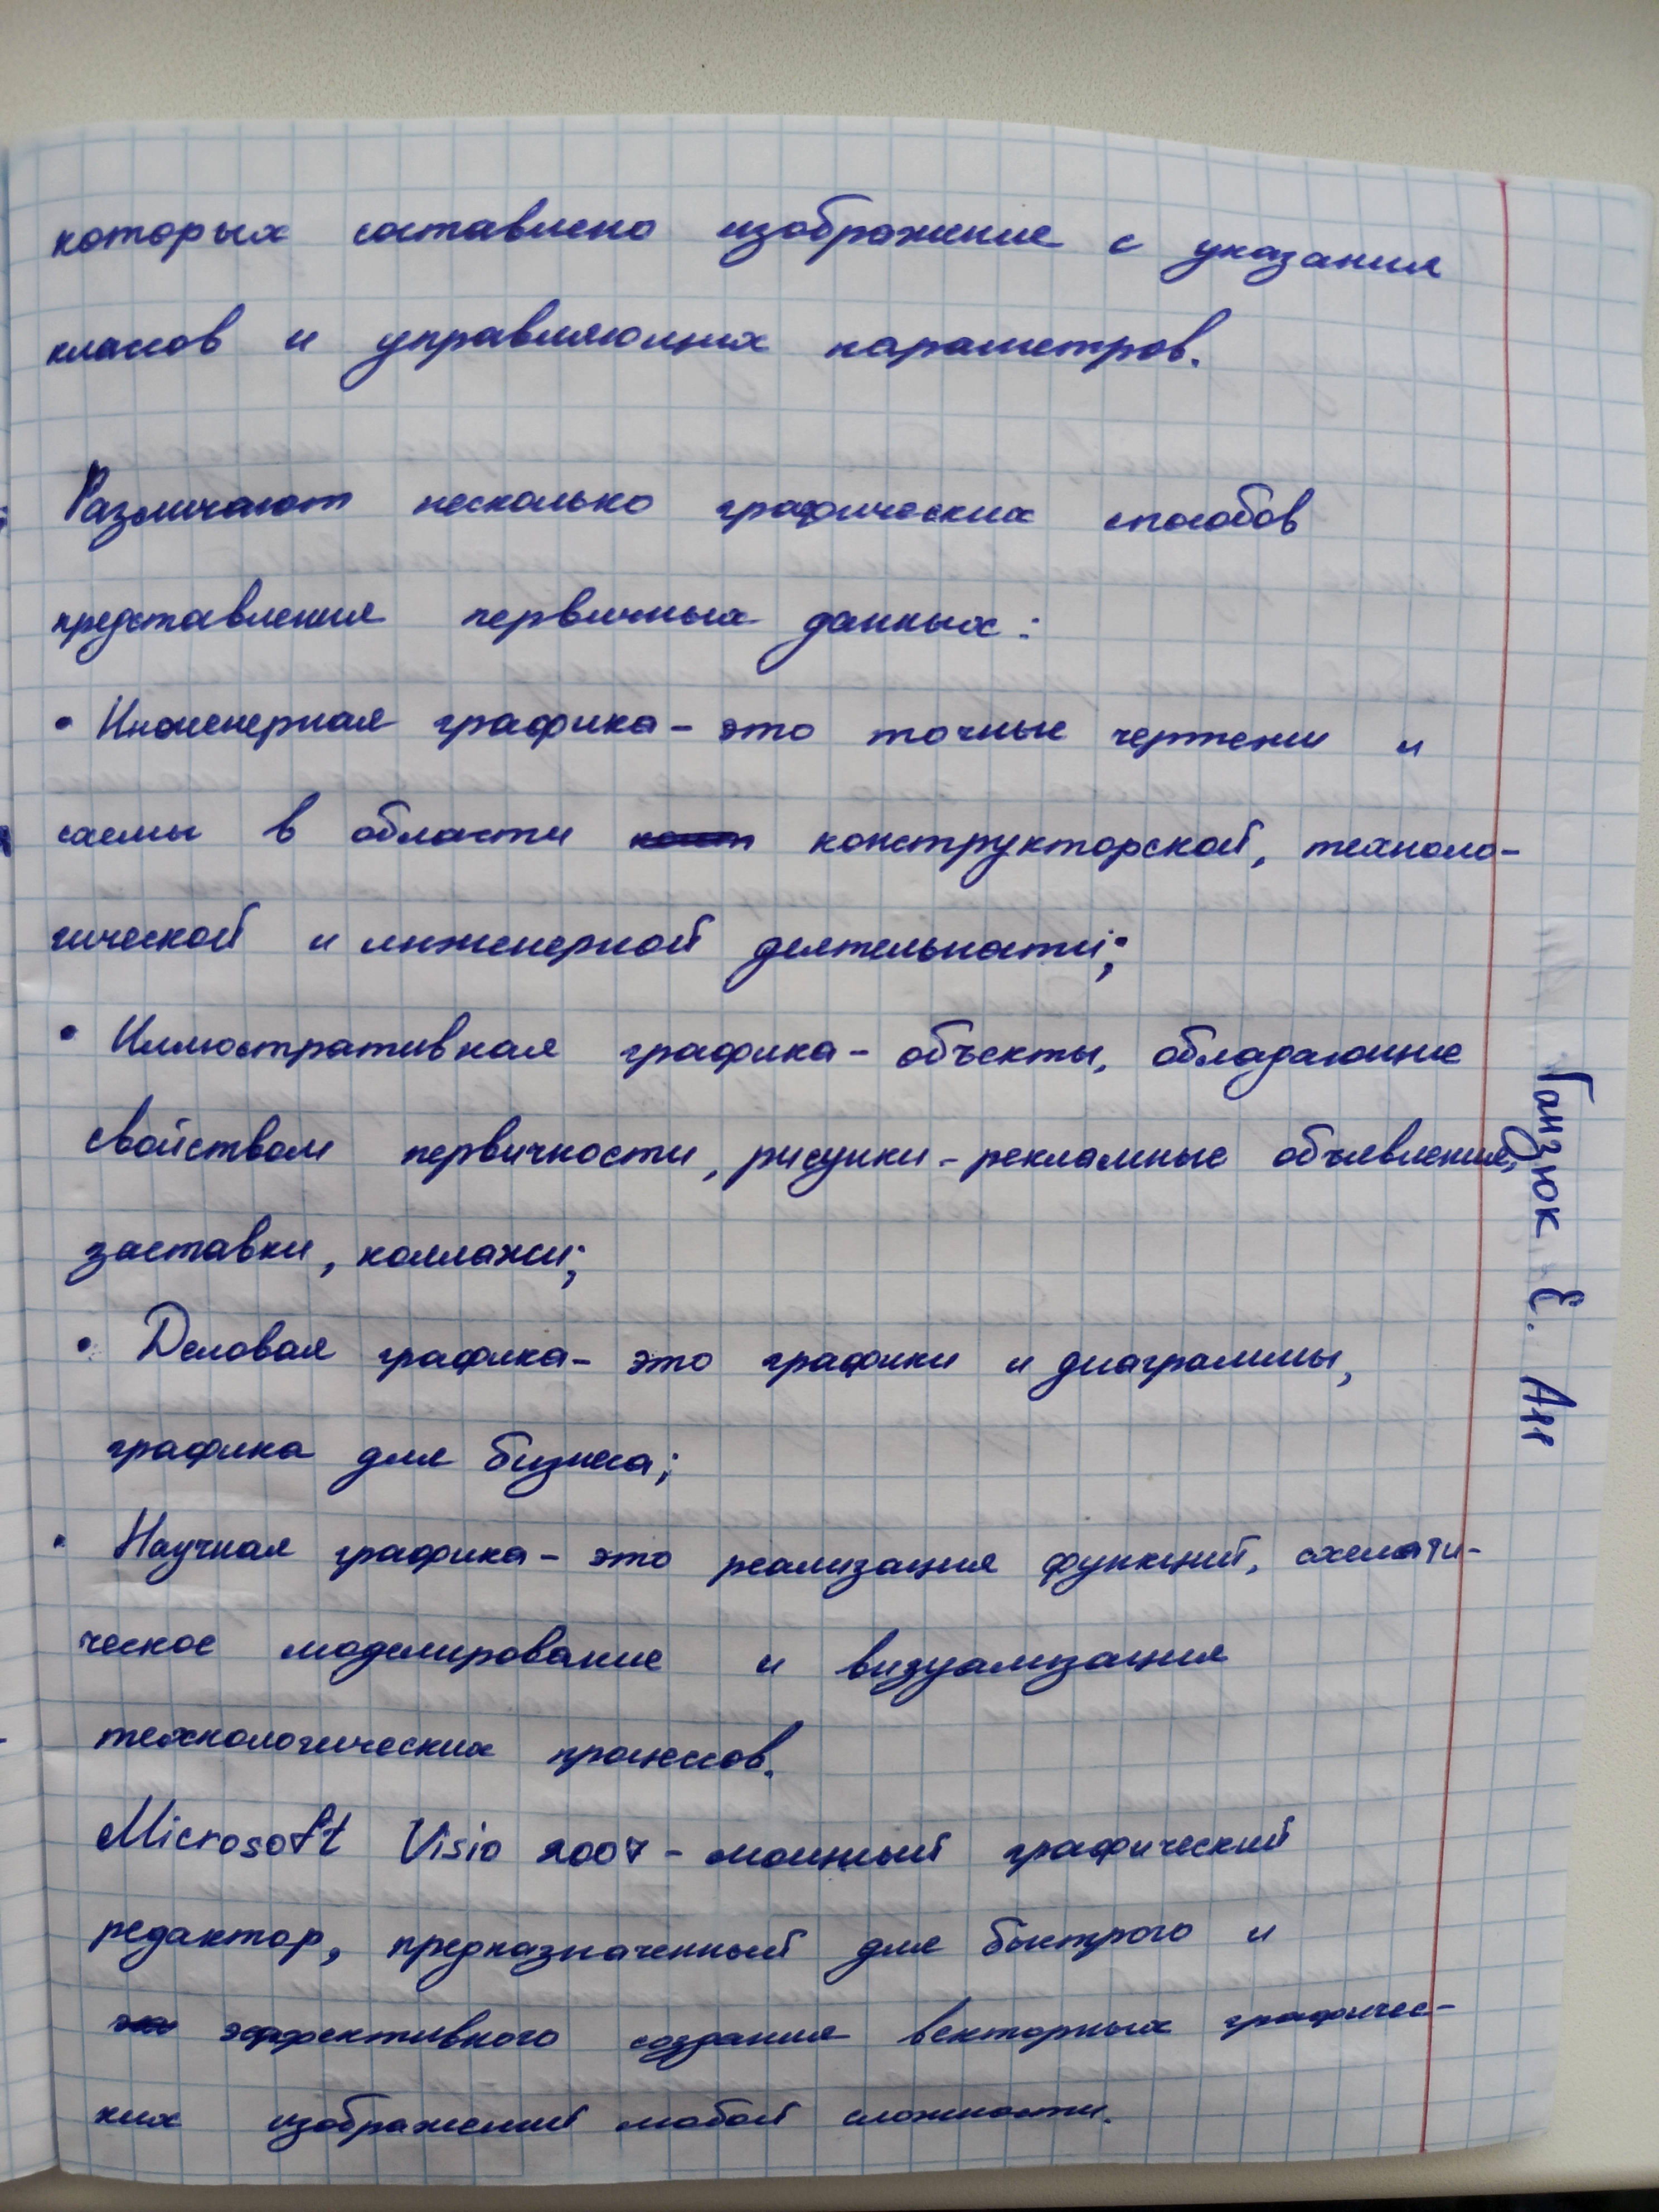 которых составлено изображение с указания
классов и управляющих параметров.
Различают несколько графических способов
представления первичных данных:
• Инженерная графика - это точные чертежи и
схемы в области конструкторской, техноло-
гической и инженерной деятельности;
• Иллюстративная графика - объекты, обладающие
свойством первичности, рисунки - рекламные объявления,
заставки, коллажи;
• Деловая графика - это графики и диаграммы,
графика для бизнеса;
• Научная графика - это реализация функций, схемати-
ческое моделирование и визуализация
технологических процессов.
Microsoft Visio 2007 - мощный графический
редактор, предназначенный для быстрого и
эффективного создания векторных графичес-
ких изображений любой сложности.
Ганзюк Е. А11